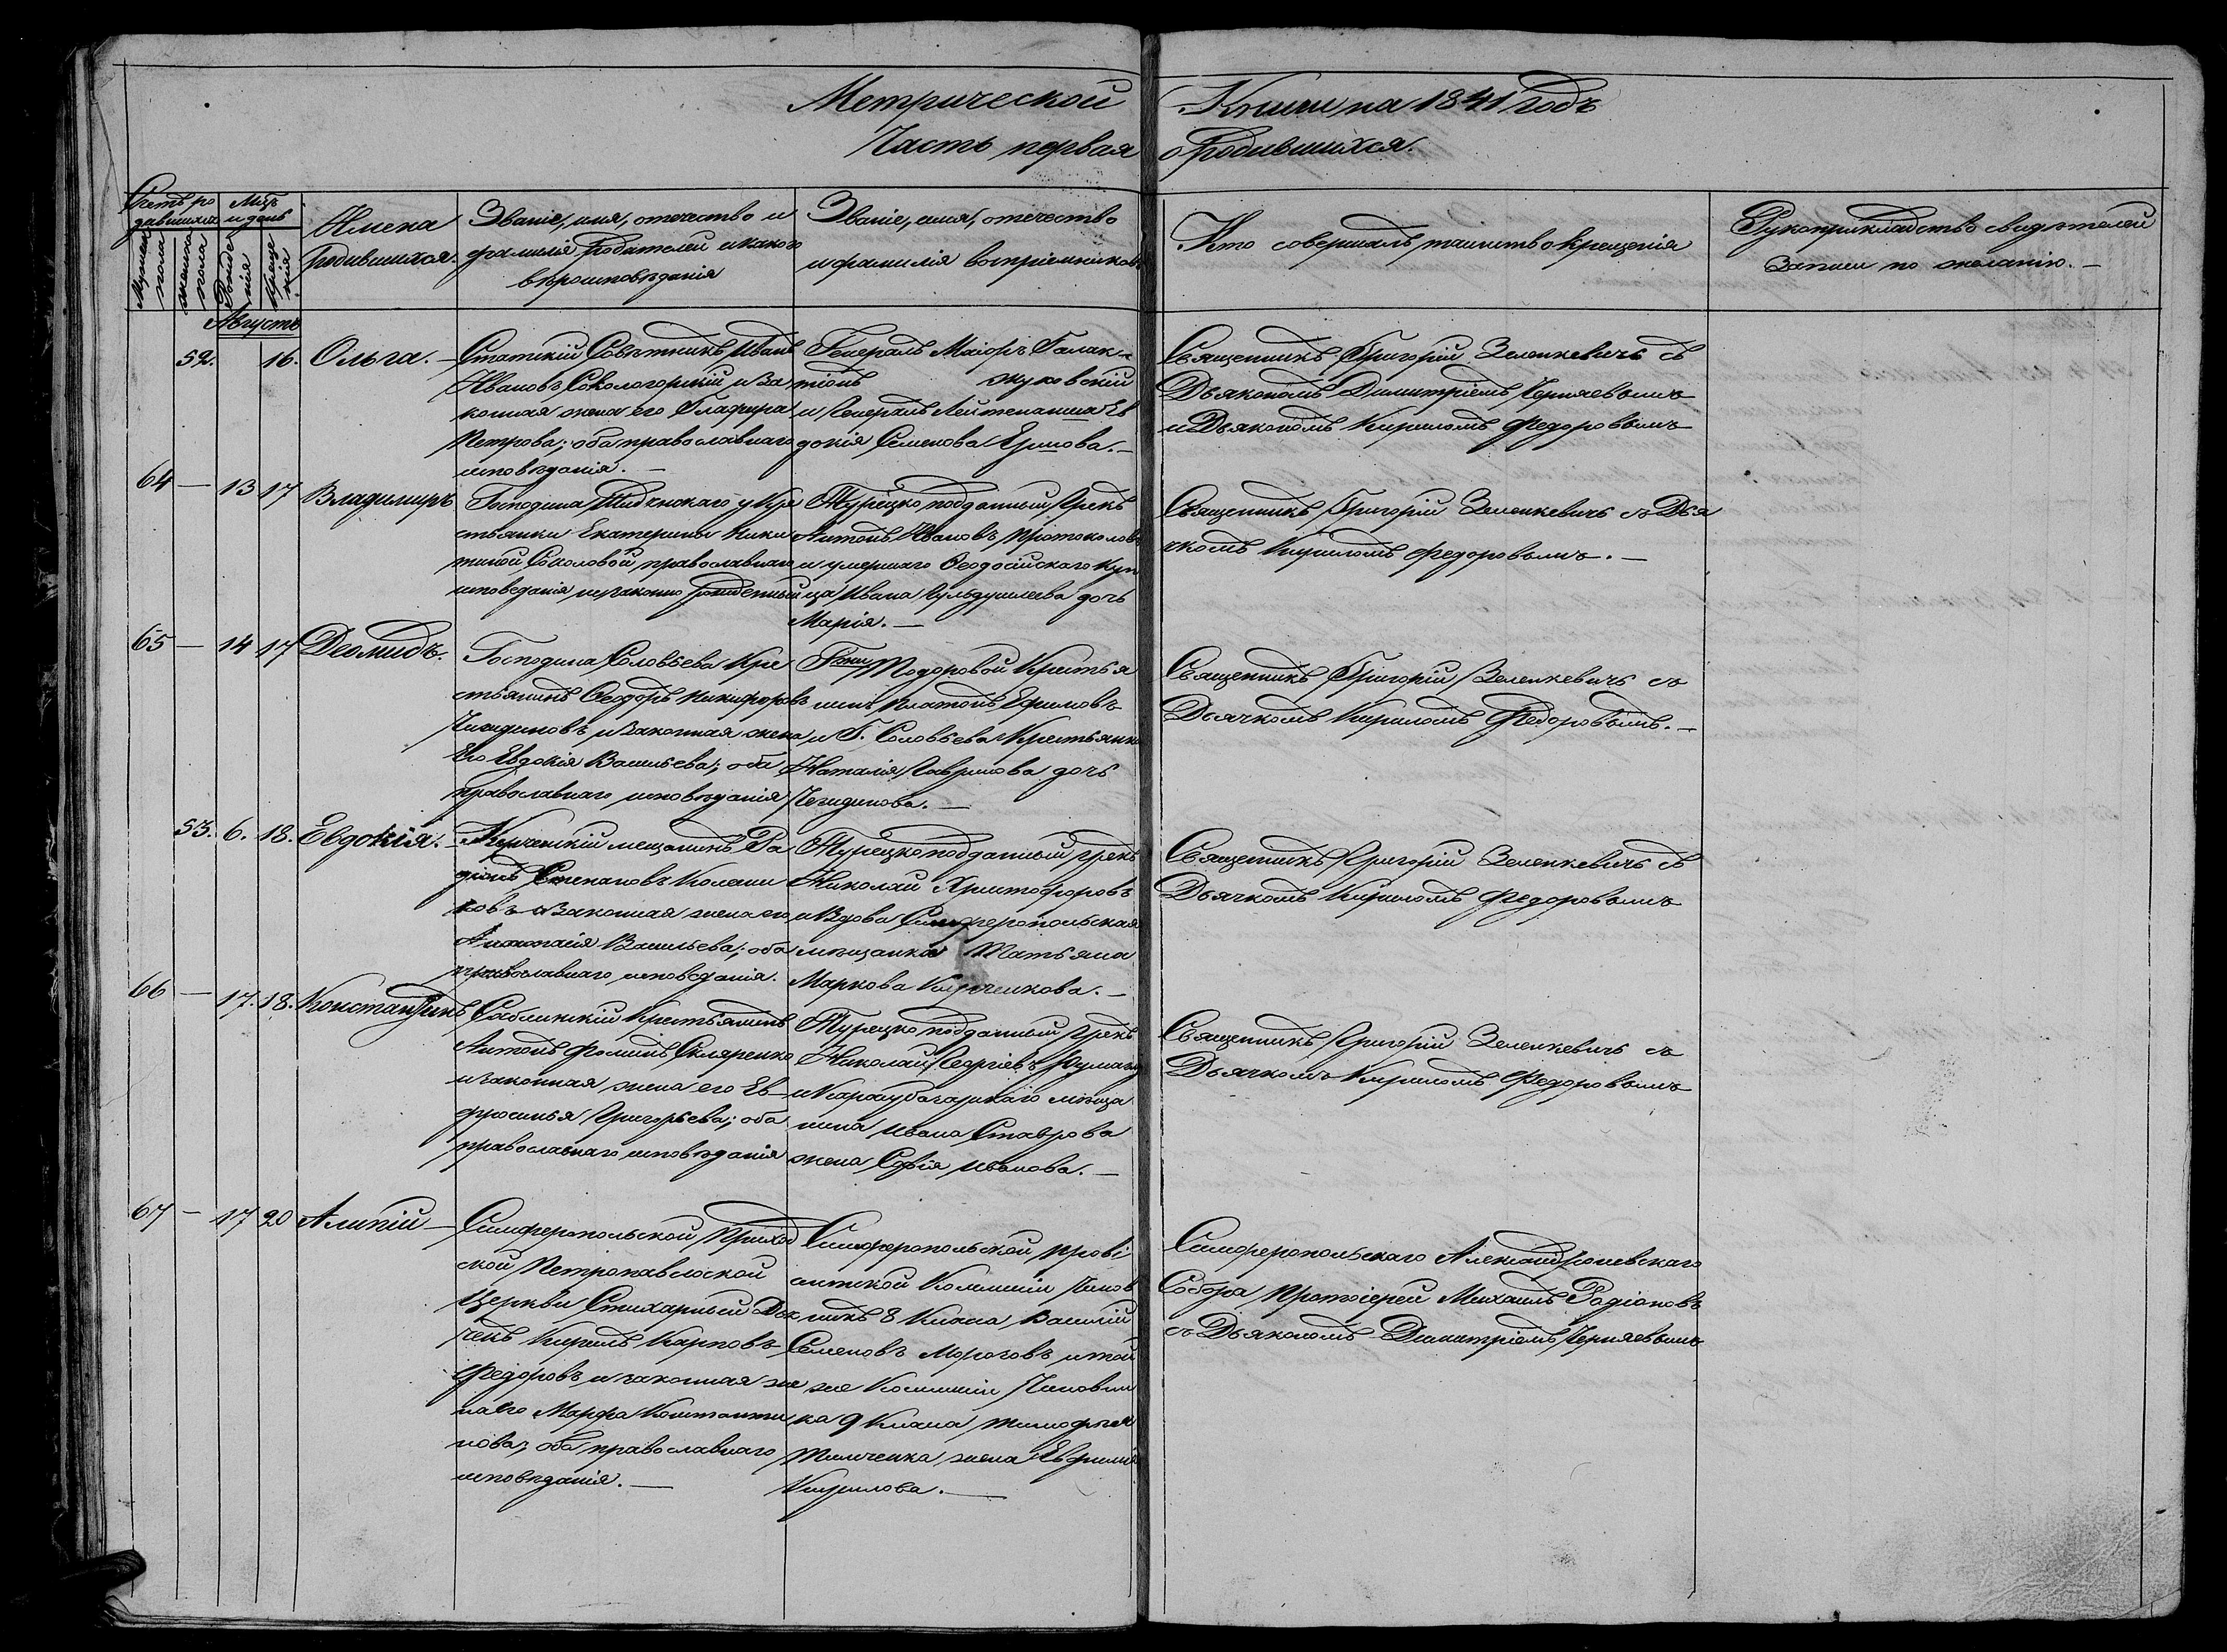 Метрической Книги на 1841 годъ
Часть первая о родившихся.
Счетъ ро
дившихся
Мужеска
пола
женска
пола
Мѣц.
и день
Рожде
нія
Креще
нія
Имена
родившихся.
Званіе, имя, отечество и
фамилія Родителей и какого
вѣроисповѣданія
Званіе, имя, отечество
и фамилія воспріемниковъ
Кто совершалъ таинство крещенія
Рукоприкладство свидѣтелей
записи по желанію. —
Августъ
52. 16. Ольга. —
Статскій Совѣтникъ Иванъ
Ивановъ Сокологорскій и За
конная жена его Глафира
Петрова; оба православнаго
исповѣданія. —
Генералъ Маіоръ Галак-
тіонъ Жуковскій
и Генералъ Лейтенанша Ев
докія Семенова Ершова. —
Священникъ Григорій Зеленкевичъ съ
Дьякономъ Димитріемъ Черняевымъ
и Дьякономъ Кириломъ Федоровымъ
64 — 13 17 Владимиръ
Господина у Кре
стьянки Екатерины Ники
тиной Соколовой, православнаго
исповеданія незаконно рожденный
Турецко подданный Грекъ
Антонъ Ивановъ Протоколовъ
и умершаго Ѳеодосійскаго куп
ца Ивана дочь
Марія. —
Священникъ Григорій Зеленкевичъ съ Дья
чкомъ Кириломъ Федоровымъ. —
65 — 14 17 Деомидъ.
Господина Соловьева Кре
стьянинъ Ѳеодоръ Никифоровъ
и законная жена
Его Евдокія Васильева; оба
православнаго исповѣданія
Тодоровой Крестья
нинъ Платонъ Ефимовъ
и Г. Соловьева Крестьянка
Наталія Гаврилова дочь
Священникъ Григорій Зеленкевичъ съ
Дьячкомъ Кириломъ Федоровымъ. —
53. 6. 18. Евдокія. —
Керченскій мещанинъ Ра
діонъ Степановъ Колесни
ковъ и Законная жена его
Васильева; оба
православнаго исповеданія.
Турецкоподданный грекъ
Николай Христофоровъ
и Вдова Симферопольская
мѣщанка Татьяна
Маркова —
Священникъ Григорій Зеленкевичъ съ
Дьячкомъ Кириломъ Федоровымъ
66 — 17. 18. Константинъ
Саблинскій Крестьянинъ
Антонъ Фоминъ Скляренко
и законная жена его Ев
фросинья Григорьева; оба
православнаго исповѣданія
Турецко подданный Грекъ
Николай Георгіевъ
и Карасубазарскаго мѣща
нина Ивана Ставрова
жена Софія Иванова. —
Священникъ Григорій Зеленкевичъ съ
Дьячкомъ Кириломъ Федоровымъ
67 — 17 20 Алипій —
Симферопольской Приход
ской Петропавловской
Церкви Стихарный Дья
чекъ Кирилъ Карповъ
Федоровъ и законная же
на его Марфа Константи
нова, оба православнаго
исповѣданія. —
Симферопольской Прові
антской Коммисіи Чинов
никъ 8 Класа Василій
Семеновъ Морозовъ, и той
же Комисіи Чиновни
ка 9 Класа Тимофея
Тимченка жена Евфимія
Кирилова. —
Симферопольскаго Александроневскаго
Собора Протоіерей Михаилъ Радіоновъ
съ Дьякономъ Димитріемъ Черняевымъ